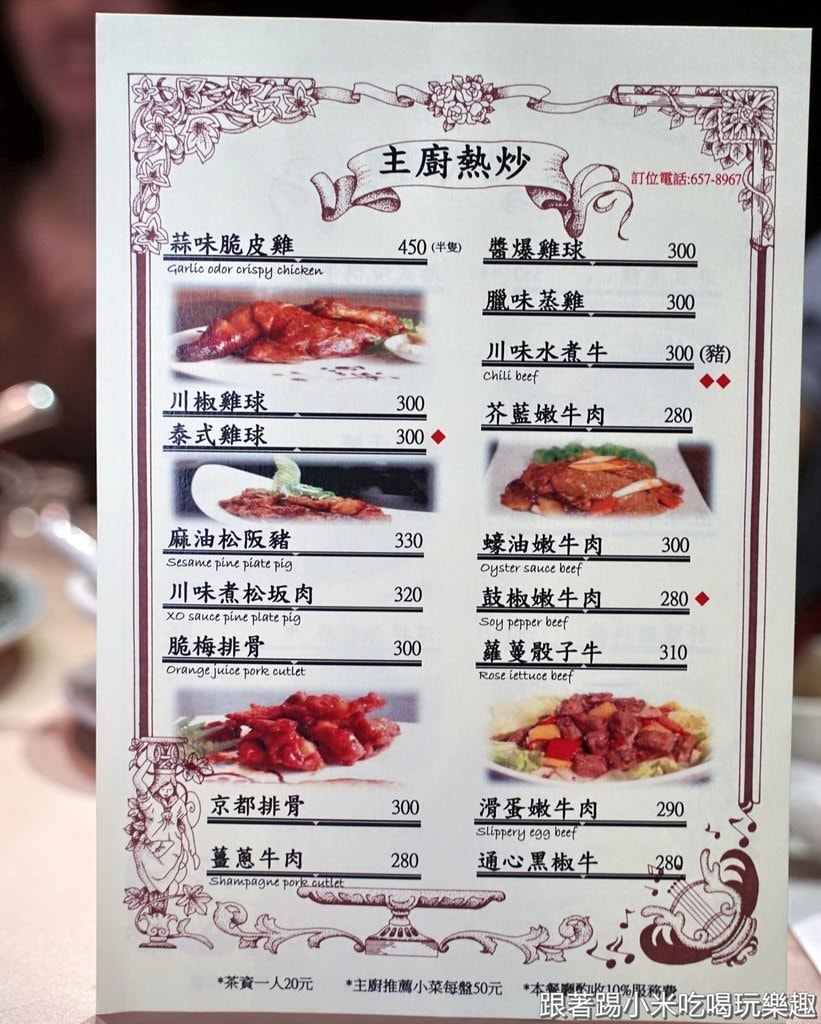 主廚熱炒
訂位電話:657-8967
蒜味脆皮雞 450 (半隻)
Garlic odor crispy chicken
川椒雞球 300
泰式雞球 300
麻油松阪豬 330
Sesame pine piate pig
川味煮松坂肉 320
XO sauce pine plate pig
脆梅排骨 300
Orange juice pork cutlet
京都排骨 300
薑蔥牛肉 280
Shampagne pork cutlet
醬爆雞球 300
臘味蒸雞 300
川味水煮牛 300 (豬)
Chili beef
芥藍嫩牛肉 280
蠔油嫩牛肉 300
Oyster sauce beef
鼓椒嫩牛肉 280
Soy pepper beef
蘿蔓骰子牛 310
Rose iettuce beef
滑蛋嫩牛肉 290
Slippery egg beef
通心黑椒牛 280
*茶資一人20元 *主廚推薦小菜每盤50元 *本餐廳酌收10%服務費
跟著踢小米吃喝玩樂趣